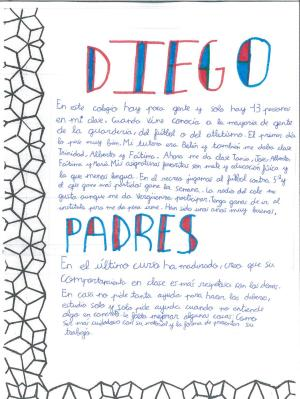 DIEGO
En este colegio hay poca gente y solo hay 13 personas
en mi clase. Cuando vine conocía a la mayoría de gente
de la guardería, del fútbol o del atletismo. El primer día
lo pasé muy bien. Mi tutora era Belén y también me daba clase
Trinidad, Alberto y Fátima. Ahora me da clase Tania, Jose, Alberto,
Fátima y María. Mis asignaturas favoritas son mates y educación física y
la que menos lengua. En el recreo jugamos al fútbol contra 5º y
el que gane más partidos gana la semana. La radio del cole me
gusta aunque me da vergüenza participar. Tengo ganas de ir al
instituto pero me da pena irme. Han sido unos años muy buenos.
PADRES
En el último curso ha madurado, creo que su
comportamiento en clase es más respetuoso con los demás.
En casa no pide tanta ayuda para hacer los deberes,
estudia solo y solo pide ayuda cuando no entiende
algo en concreto. Le falta mejorar algunas cosas como
ser más cuidadoso con su material y la forma de presentar su
trabajo.